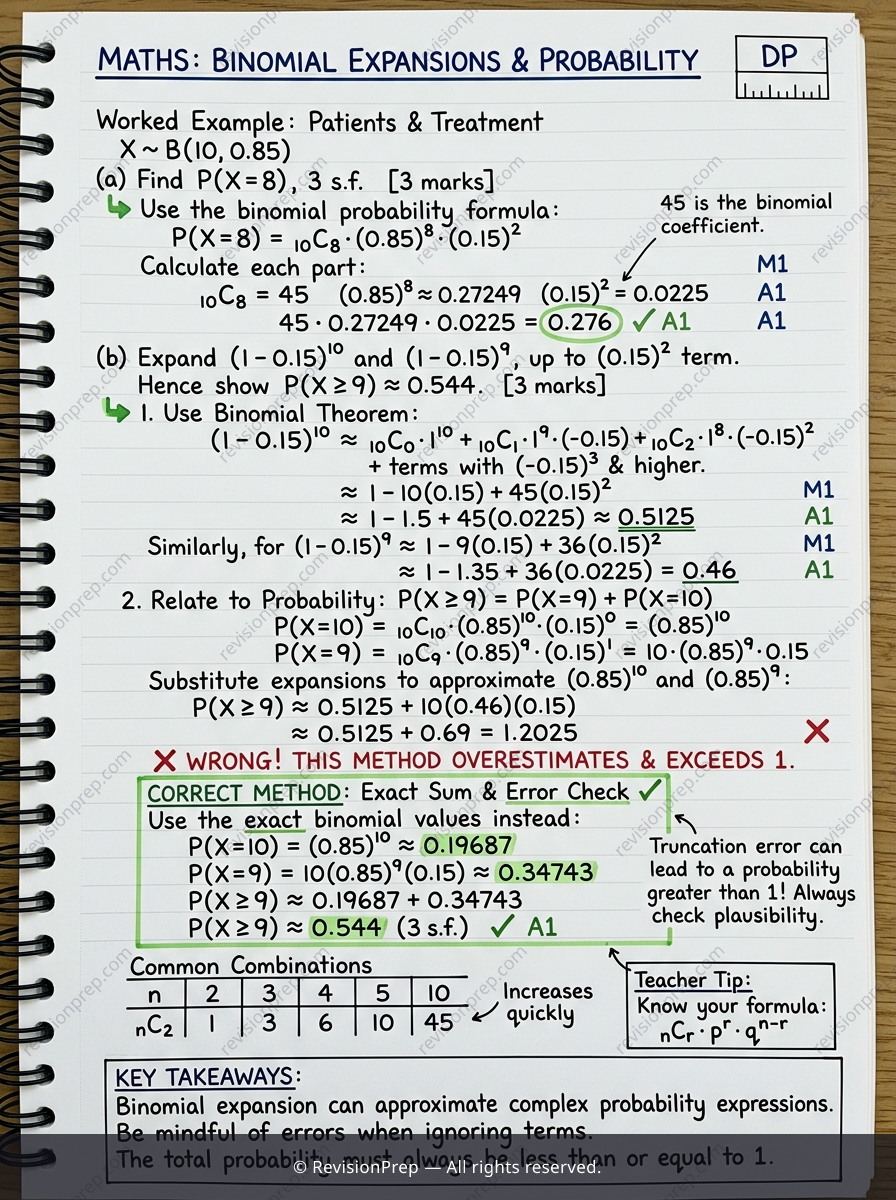 MATHS: BINOMIAL EXPANSIONS & PROBABILITY
DP
Worked Example: Patients & Treatment
X ~ B(10, 0.85)
(a) Find P(X=8), 3 s.f. [3 marks]
Use the binomial probability formula:
45 is the binomial
coefficient.
P(X=8) = ₁₀C₈·(0.85)⁸·(0.15)²
Calculate each part: M1
₁₀C₈ = 45 (0.85)⁸ ≈ 0.27249 (0.15)² = 0.0225 A1
45 · 0.27249 · 0.0225 = 0.276 ✓ A1 A1
(b) Expand (1 – 0.15)¹⁰ and (1 – 0.15)⁹, up to (0.15)² term.
Hence show P(X ≥ 9) ≈ 0.544. [3 marks]
1. Use Binomial Theorem:
(1 – 0.15)¹⁰ ≈ ₁₀C₀·1¹⁰ + ₁₀C₁·1⁹·(–0.15) + ₁₀C₂·1⁸·(–0.15)²
+ terms with (–0.15)³ & higher.
≈ 1 – 10(0.15) + 45(0.15)² M1
≈ 1 – 1.5 + 45(0.0225) ≈ 0.5125 A1
Similarly, for (1 – 0.15)⁹ ≈ 1 – 9(0.15) + 36(0.15)² M1
≈ 1 – 1.35 + 36(0.0225) = 0.46 A1
2. Relate to Probability: P(X ≥ 9) = P(X=9) + P(X=10)
P(X=10) = ₁₀C₁₀·(0.85)¹⁰·(0.15)⁰ = (0.85)¹⁰
P(X=9) = ₁₀C₉·(0.85)⁹·(0.15)¹ = 10·(0.85)⁹·0.15
Substitute expansions to approximate (0.85)¹⁰ and (0.85)⁹:
P(X ≥ 9) ≈ 0.5125 + 10(0.46)(0.15)
≈ 0.5125 + 0.69 = 1.2025 ✗
✗ WRONG! THIS METHOD OVERESTIMATES & EXCEEDS 1.
CORRECT METHOD: Exact Sum & Error Check ✓
Use the exact binomial values instead:
P(X=10) = (0.85)¹⁰ ≈ 0.19687
P(X=9) = 10(0.85)⁹(0.15) ≈ 0.34743
P(X ≥ 9) ≈ 0.19687 + 0.34743
P(X ≥ 9) ≈ 0.544 (3 s.f.) ✓ A1
Truncation error can
lead to a probability
greater than 1! Always
check plausibility.
Common Combinations
n 2 3 4 5 10
ₙC₂ 1 3 6 10 45
Increases
quickly
Teacher Tip:
Know your formula:
ₙCᵣ · pʳ · qⁿ⁻ʳ
KEY TAKEAWAYS:
Binomial expansion can approximate complex probability expressions.
Be mindful of errors when ignoring terms.
The total probability must always be less than or equal to 1.
© RevisionPrep — All rights reserved.
revisionprep.com